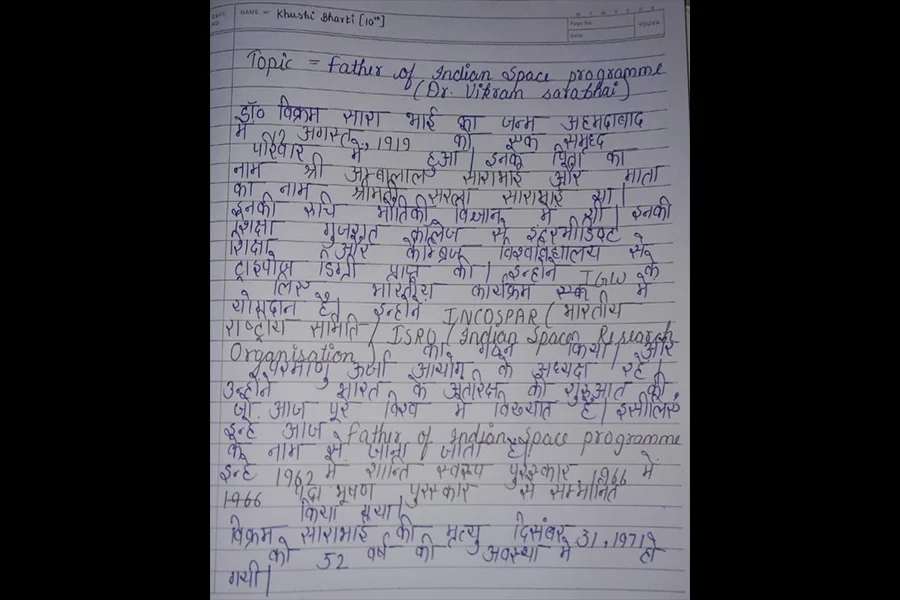 NAME - Khushi Bharti [10th]
Page No.
Date
YOUVA
Topic = Father of Indian Space programme
(Dr. Vikram sarabhai)
डॉ० विक्रम सारा भाई का जन्म अहमदाबाद
में 12 अगस्त, 1919 को एक समृध्द
परिवार में हुआ। इनके पिता का
नाम श्री अम्बालाल साराभाई और माता
का नाम श्रीमती सरला साराभाई था।
इनकी रुचि भौतिकी विज्ञान में थी। इनकी
शिक्षा गुजरात कॉलेज से इंटरमीडिएट
शिक्षा और कैम्ब्रिज विश्वविद्यालय से
ट्राइपोस डिग्री प्राप्त की। इन्होंने IGW के
लिए भारतीय कार्यक्रम एक में
योगदान है। इन्होंने INCOSPAR (भारतीय
राष्ट्रीय समिति / ISRO (Indian Space Research
Organisation) का गठन किया। और
परमाणु ऊर्जा आयोग के अध्यक्ष रहे।
उन्होंने भारत के अंतरिक्ष की शुरुआत की
जो आज पूरे विश्व में विख्यात है। इसीलिए
इन्हें आज Father of Indian Space programme
के नाम से जाना जाता है।
इन्हें 1962 में शान्ति स्वरूप पुरस्कार, 1966 में
1966 पद्म भूषण पुरस्कार से सम्मानित
किया गया।
विक्रम साराभाई की मृत्यु दिसंबर 31, 1971
को 52 वर्ष की अवस्था में हो
गयी।